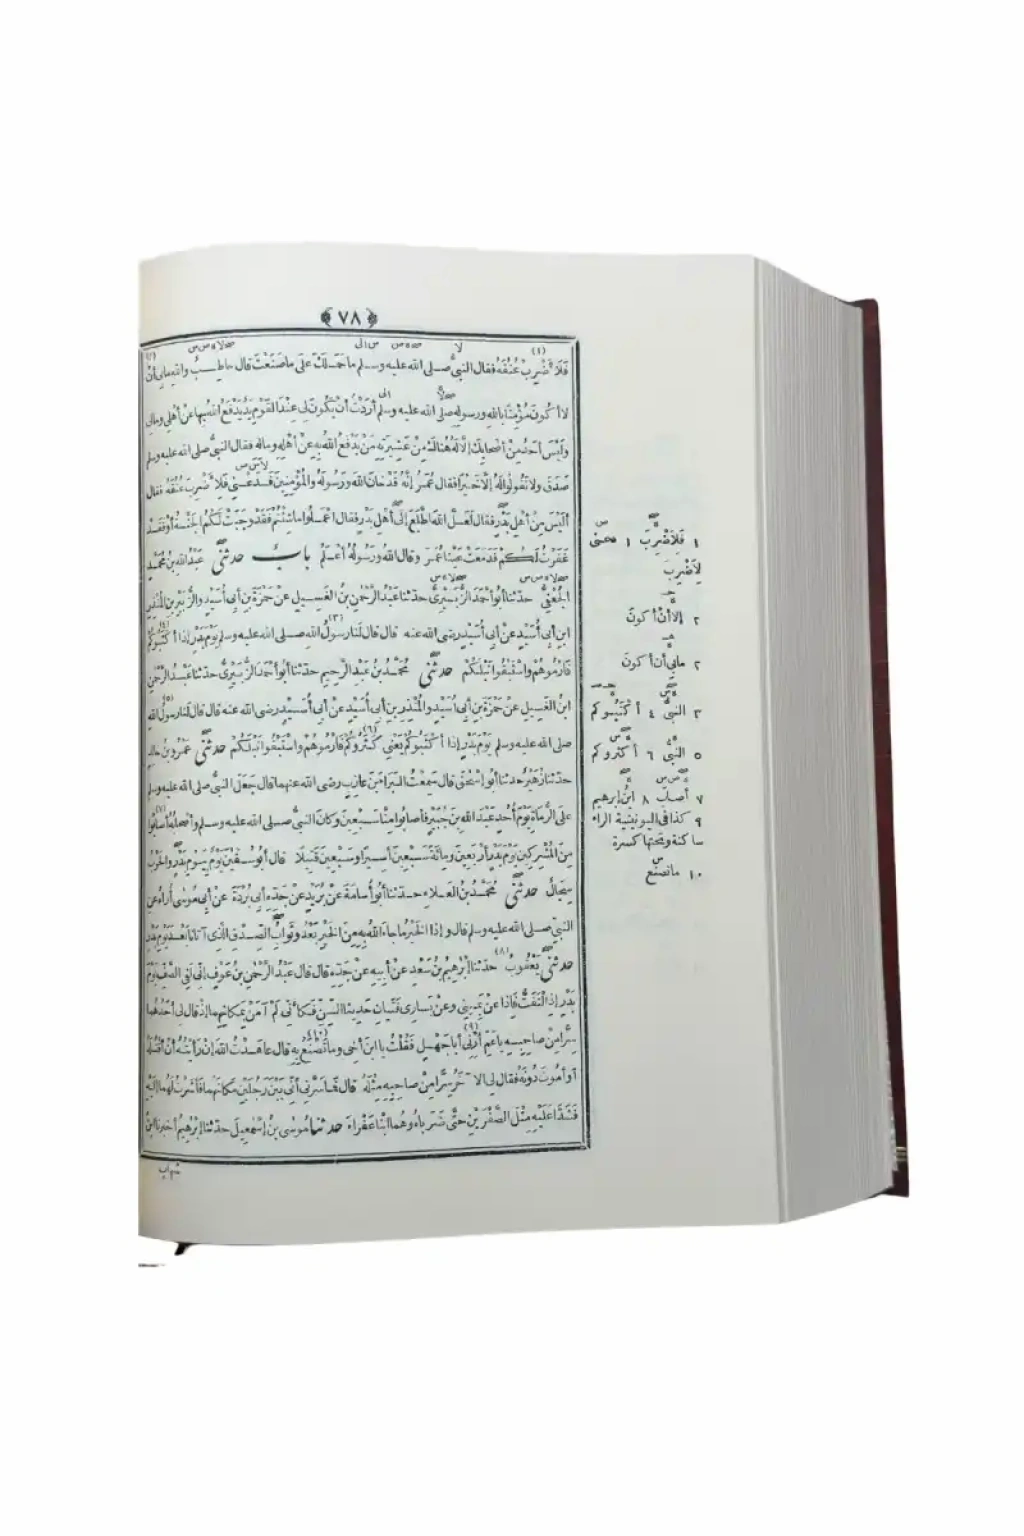 ﴿٧٨﴾
فَلَأَضْرِبْ عُنُقَهُ فقال النبىُّ صلى الله عليه وسلم ما حَمَلَكَ عَلَى ما صَنَعْتَ قال حاطِبٌ واللهِ مابِى أنْ
لا أكُونَ مُؤْمِنًا بالله ورسوله صلى الله عليه وسلم أرَدْتُ أنْ يَكُونَ لِى عِنْدَ القَوْمِ يَدٌ يَدْفَعُ اللهُ بِها عنْ أهْلِى ومالِى
ولَيْسَ أحَدٌ مِنْ أصْحابِكَ إلَّا لَهُ هُناكَ مِنْ عَشِيرَتِهِ مَنْ يَدْفَعُ اللهُ بِهِ عنْ أهْلِهِ ومالِهِ فقال النبىُّ صلى الله عليه وسلم
صَدَقَ ولا تَقُولُوا لَهُ إلَّا خَيْرًا فقال عُمَرُ إنَّهُ قَدْ خانَ اللهَ ورسولَهُ والْمُؤْمِنِينَ فَدَعْنِى فَلِأَضْرِبَ عُنُقَهُ فقال
ألَيْسَ مِنْ أهْلِ بَدْرٍ فقال لَعَلَّ اللهَ اطَّلَعَ إلَى أهْلِ بَدْرٍ فقال اعْمَلُوا ما شِئْتُمْ فَقَدْ وَجَبَتْ لَكُمُ الْجَنَّةُ أوْ فَقَدْ
غَفَرْتُ لَكُمْ فَدَمَعَتْ عَيْنا عُمَرَ وقال اللهُ ورَسُولُهُ أعْلَمُ بابٌ حدثنى عَبْدُ اللهِ بنُ مُحَمَّدٍ
الجُعْفِىُّ حدّثنا أبُو أحْمَدَ الزُّبَيْرِىُّ حدّثنا عَبْدُ الرَّحْمٰنِ بنُ الغَسِيلِ عنْ حَمْزَةَ بنِ أبى أُسَيْدٍ والزُّبَيْرِ بنِ المُنْذِرِ
ابنِ أبى أُسَيْدٍ عنْ أبى أُسَيْدٍ رضى الله عنه قال قال لَنا رسولُ الله صلى الله عليه وسلم يَوْمَ بَدْرٍ إذا أكْثَبُوكُمْ
فارْمُوهُمْ واسْتَبْقُوا نَبْلَكُمْ حدثنى مُحَمَّدُ بنُ عَبْدِ الرَّحِيمِ حدّثنا أبُو أحْمَدَ الزُّبَيْرِىُّ حدّثنا عَبْدُ الرَّحْمٰنِ
ابنُ الغَسِيلِ عنْ حَمْزَةَ بنِ أبى أُسَيْدٍ والمُنْذِرِ بنِ أبى أُسَيْدٍ عنْ أبى أُسَيْدٍ رضى الله عنه قال قال لَنا رسولُ الله
صلى الله عليه وسلم يَوْمَ بَدْرٍ إذا أكْثَبُوكُمْ يَعْنِى كَثَرُوكُمْ فارْمُوهُمْ واسْتَبْقُوا نَبْلَكُمْ حدثنى عَمْرُو بنُ خالِدٍ
حدّثنا زُهَيْرٌ حدّثنا أبُو إسْحٰقَ قال سَمِعْتُ البَراءَ بنَ عازِبٍ رضى الله عنهما قال جَعَلَ النبىُّ صلى الله عليه وسلم
عَلَى الرُّماةِ يَوْمَ أُحُدٍ عَبْدَ الله بنَ جُبَيْرٍ فأصابُوا مِنَّا سَبْعِينَ وكانَ النبىُّ صلى الله عليه وسلم وأصْحابُهُ أصابُوا
مِنَ المُشْرِكِينَ يَوْمَ بَدْرٍ أرْبَعِينَ ومِائَةً سَبْعِينَ أسِيرًا وسَبْعِينَ قَتِيلًا قال أبُو سُفْيٰنَ يَوْمٌ بِيَوْمِ بَدْرٍ والحَرْبُ
سِجالٌ حدثنى مُحَمَّدُ بنُ العَلاءِ حدّثنا أبُو أُسامَةَ عنْ بُرَيْدٍ عنْ جَدِّهِ أبى بُرْدَةَ عنْ أبى مُوسَى أُراهُ عنِ
النبىّ صلى الله عليه وسلم قال وإذا الخَيْرُ ما جاءَ اللهُ بِهِ مِنَ الخَيْرِ بَعْدُ وثَوابُ الصِّدْقِ الَّذِى آتانا بَعْدَ يَوْمِ بَدْرٍ
حدثنى يَعْقُوبُ حدّثنا إبْرٰهِيمُ بنُ سَعْدٍ عنْ أبِيهِ عنْ جَدِّهِ قال قال عَبْدُ الرَّحْمٰنِ بنُ عَوْفٍ إنِّى لَفِى الصَّفِّ يَوْمَ
بَدْرٍ إذِ الْتَفَتُّ فإذا عنْ يَمِينِى وعنْ يَسارِى فَتَيانِ حَدِيثا السِّنِّ فَكَأنِّى لَمْ آمَنْ بِمَكانِهِما إذْ قال لِى أحَدُهُما
سِرًّا مِنْ صاحِبِهِ ياعَمِّ أرِنِى أبا جَهْلٍ فَقُلْتُ يا ابنَ أخِى وما تَصْنَعُ بِهِ قال عاهَدْتُ اللهَ إنْ رَأيْتُهُ أنْ أقْتُلَهُ
أوْ أمُوتَ دُونَهُ فقال لِى الآخَرُ سِرًّا مِنْ صاحِبِهِ مِثْلَهُ قال فَما سَرَّنِى أنِّى بَيْنَ رَجُلَيْنِ مَكانَهُما فأشَرْتُ لَهُما إلَيْهِ
فَشَدَّا عَلَيْهِ مِثْلَ الصَّقْرَيْنِ حَتَّى ضَرَباهُ وهُما ابْنا عَفْراءَ حدثنا مُوسَى بنُ إسْمٰعِيلَ حدّثنا إبْرٰهِيمُ أخبرنا ابنُ
شهاب
١ فَلِأَضْرِبَ ١
لِأَضْرِبَ
٢ إلا أنْ أكونَ
٢ مابِى أن أكونَ
٣ النبىُّ ٤ أكْثَبُوكم
٥ النبىُّ ٦ أكثروكم
٧ أصابَ ٨ ابنُ إبرهيم
٩ كذا فى اليونينية الراء
ساكنة وتحتها كسرة
١٠ ما تصْنَعُ